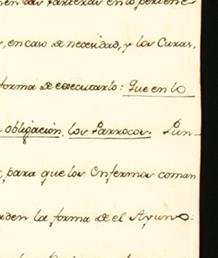 en las Parreras en lo, pertene
, en caso de necesidad, y los Curas,
forma de executarlo: Que en lo
obligación, los Parrocos. Pun-
, para que los Enfermos coman
rden la forma de el Ayuno: